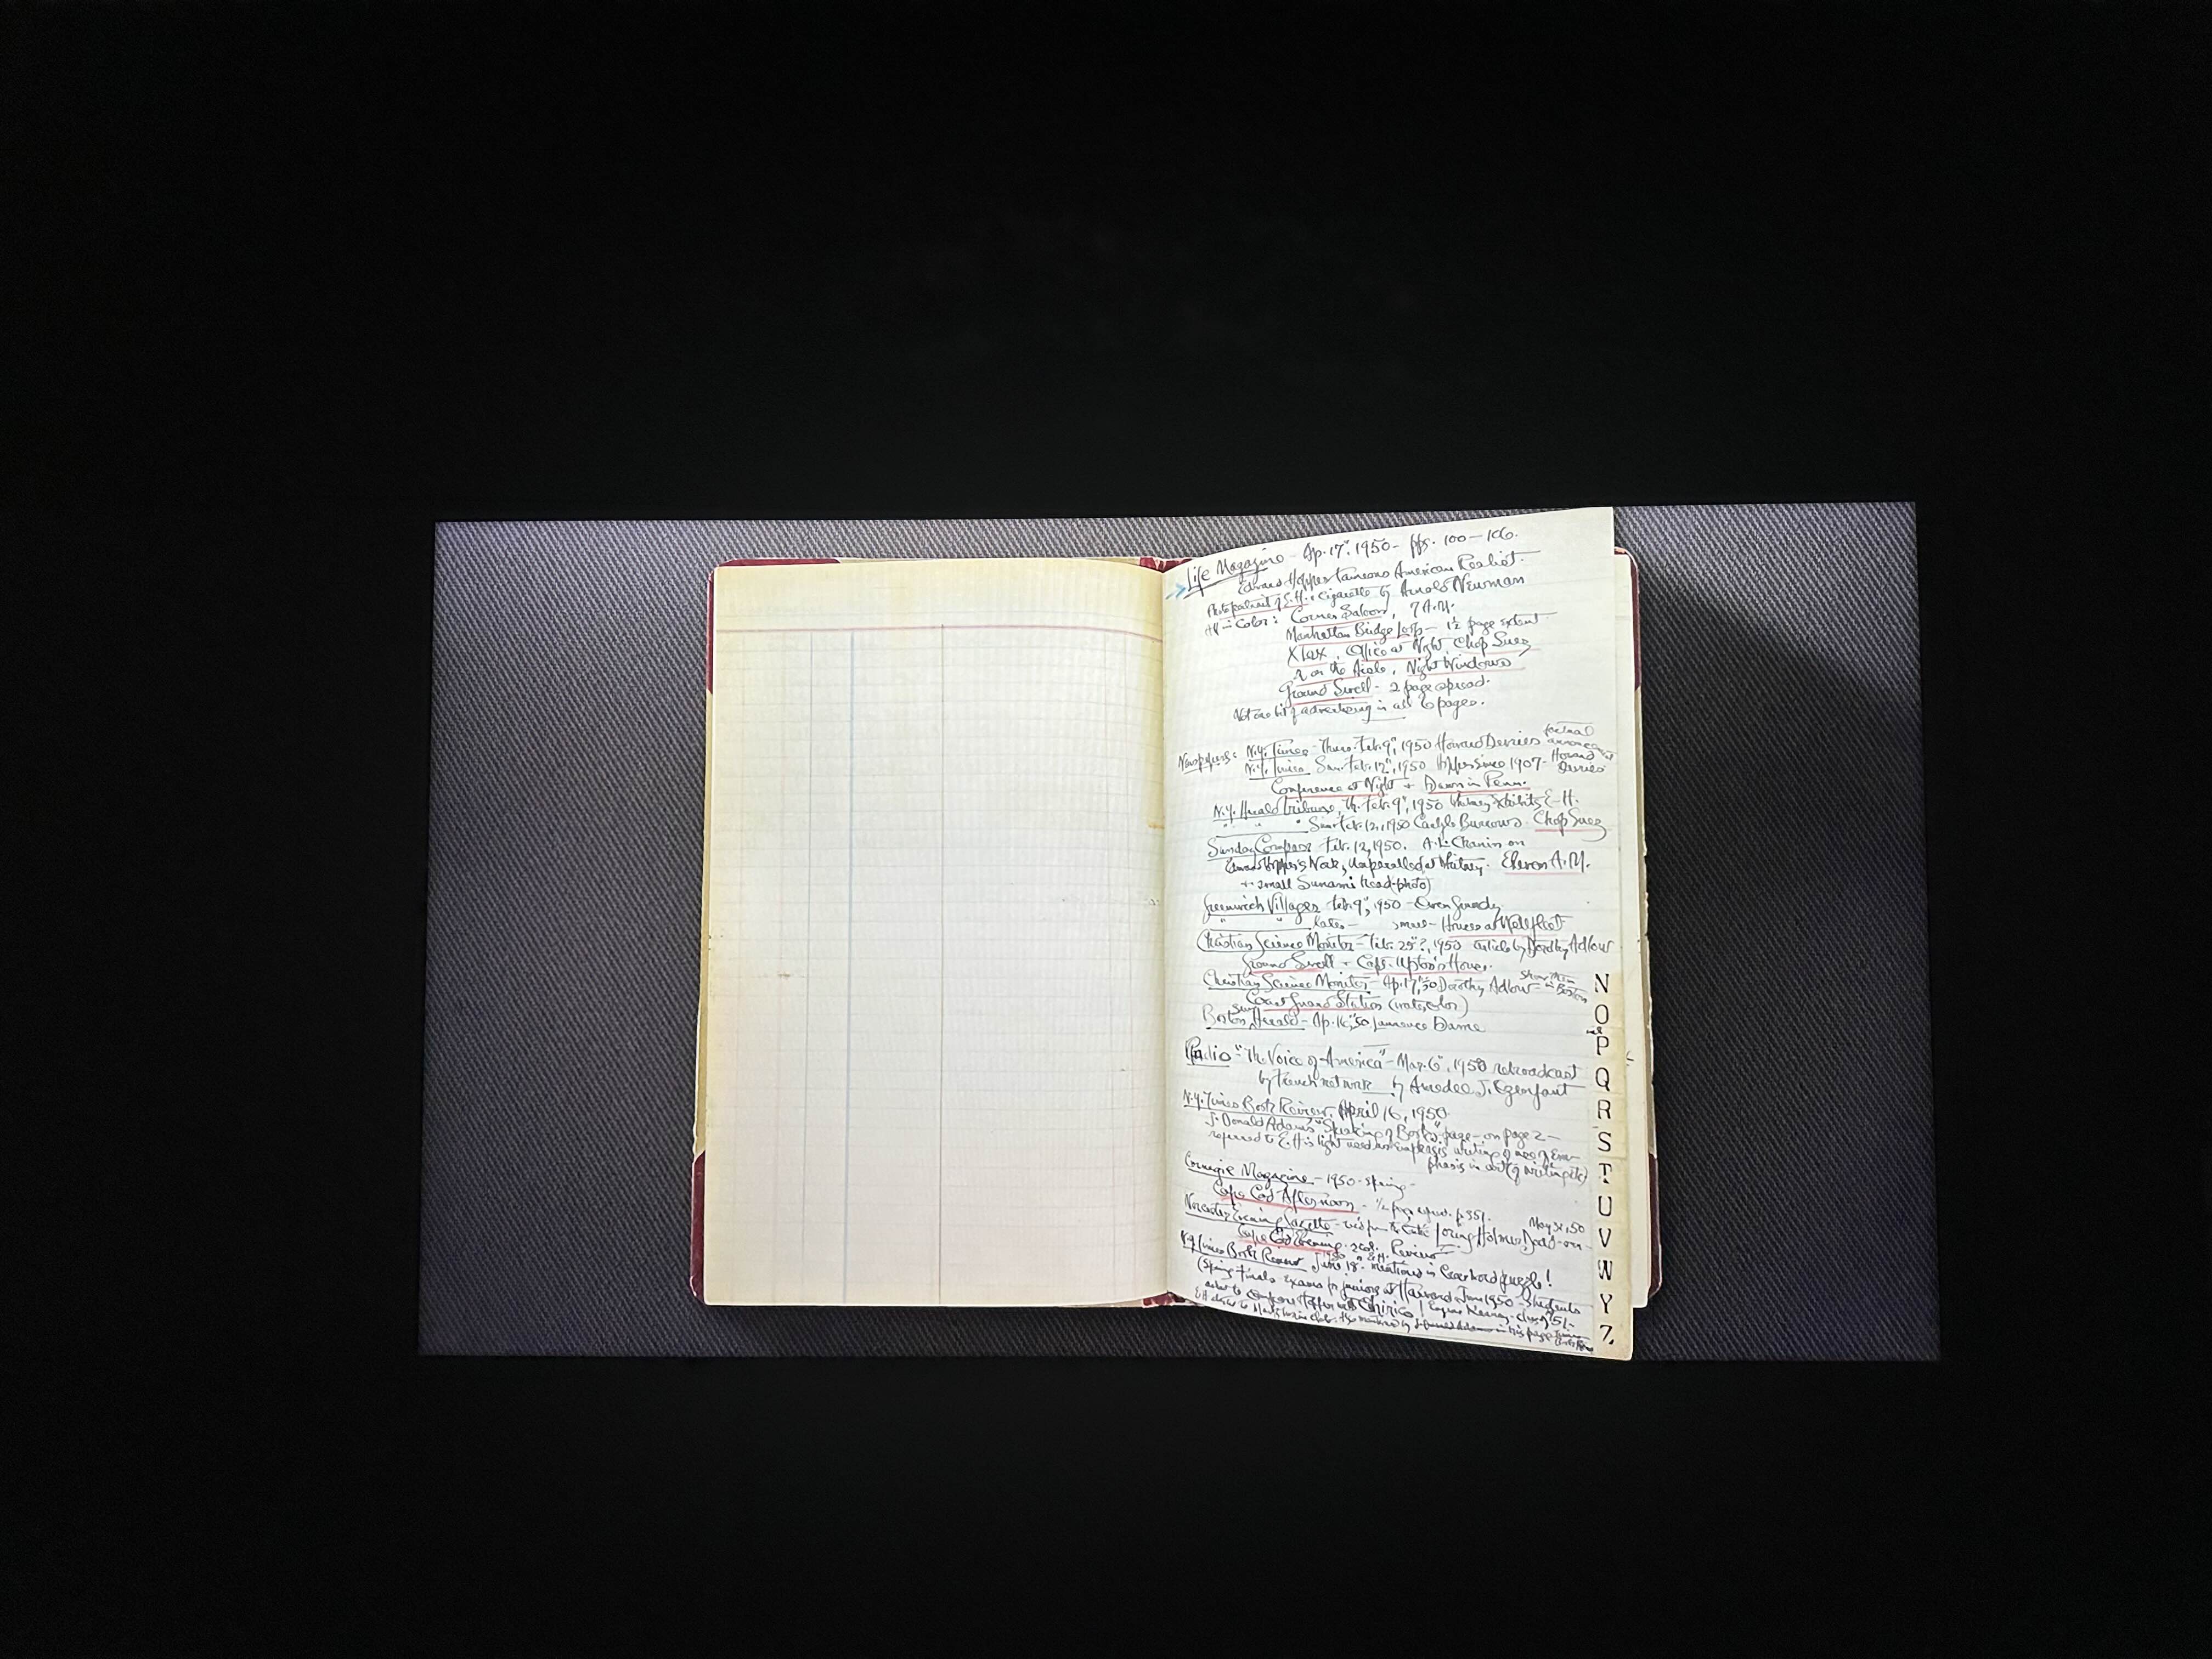 Life Magazine - Ap. 17", 1950 - pgs. 100-106.
Edward Hopper famous American Realist.
Photo portrait of E.H. + cigarette by Arnold Newman
All in Color: Corner Saloon, 7 A.M.
Manhattan Bridge Loop - 1½ page extent
Office at Night, Chop Suey
2 on the Aisle, Night Windows
Ground Swell - 2 page spread.
Not one bit of advertising in all 6 pages.
Newspapers: N.Y. Times - Thurs. Feb. 9", 1950 Howard Devries
N.Y. Times Sun. Feb. 12", 1950 Hopper since 1907 - Howard Devries
Conference at Night + Dawn in Penn.
N.Y. Herald Tribune, Th. Feb. 9", 1950 Whitney Exhibits E.H.
" " " Sun. Feb. 12, 1950 Carlyle Burrows. Chop Suey
Sunday Compass Feb. 12, 1950. A.L. Chanin on
Edward Hopper's Work, at Whitney. Eleven A.M.
+ small Sunami head-photo)
Greenwich Villager Feb. 9", 1950 - Owen
" " later - Houses at Wellfleet
Christian Science Monitor - Feb. 25"?, 1950 article by Dorothy Adlow
Ground Swell + Capt. Upton's House.
Christian Science Monitor - Ap. 17", 50 Dorothy Adlow - in Boston
Coast Guard Station (watercolor)
Boston Sun. Herald - Ap. 16", 50 Lawrence Dame
Radio "The Voice of America" - Mar. 6", 1950 rebroadcast
by French network by Amedee J. Ozenfant
N.Y. Times Book Review, April 16, 1950
J. Donald Adams' "Speaking of Books" page - on page 2 -
referred to E.H.'s light used as emphasis writing of use of Em-
phasis in art (of writing etc)
Carnegie Magazine - 1950 - spring -
Cape Cod Afternoon - ½ page p. 351.
Worcester Evening Gazette - Loring Holmes Dodd - on - May 31, 50
Cape Cod Evening. 2 col. Review
N.Y. Times Book Review June 18" 1950 - E.H. mentioned in Crossword puzzle!
(Spring finals exams for juniors at Harvard June 1950 - Students
asked to compare Hopper with Chirico! class of '51 -
N
O
P
Q
R
S
T
U
V
W
Y
Z